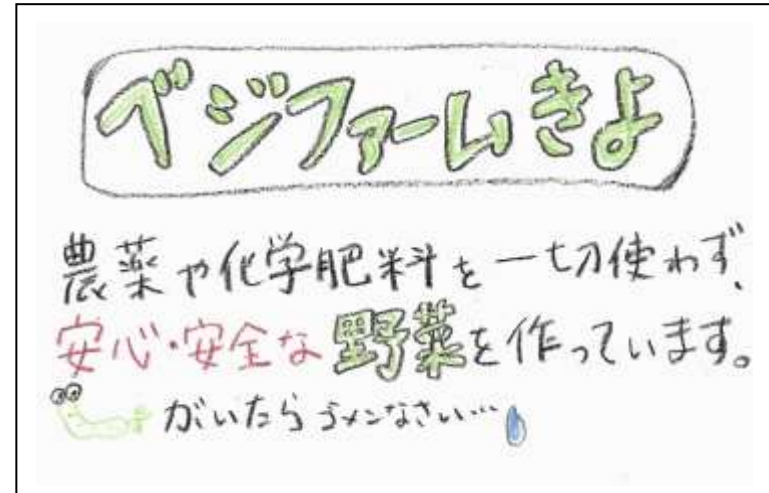 ベジファームきよ
農薬や化学肥料を一切使わず、
安心・安全な野菜を作っています。
がいたらゴメンなさい…